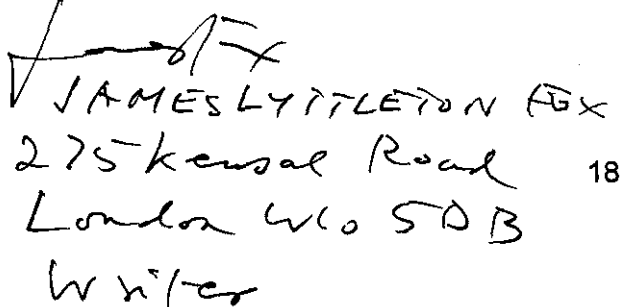 JAMES LYTTLETON FOX
275 Kensal Road
18
London W10 5DB
Writer